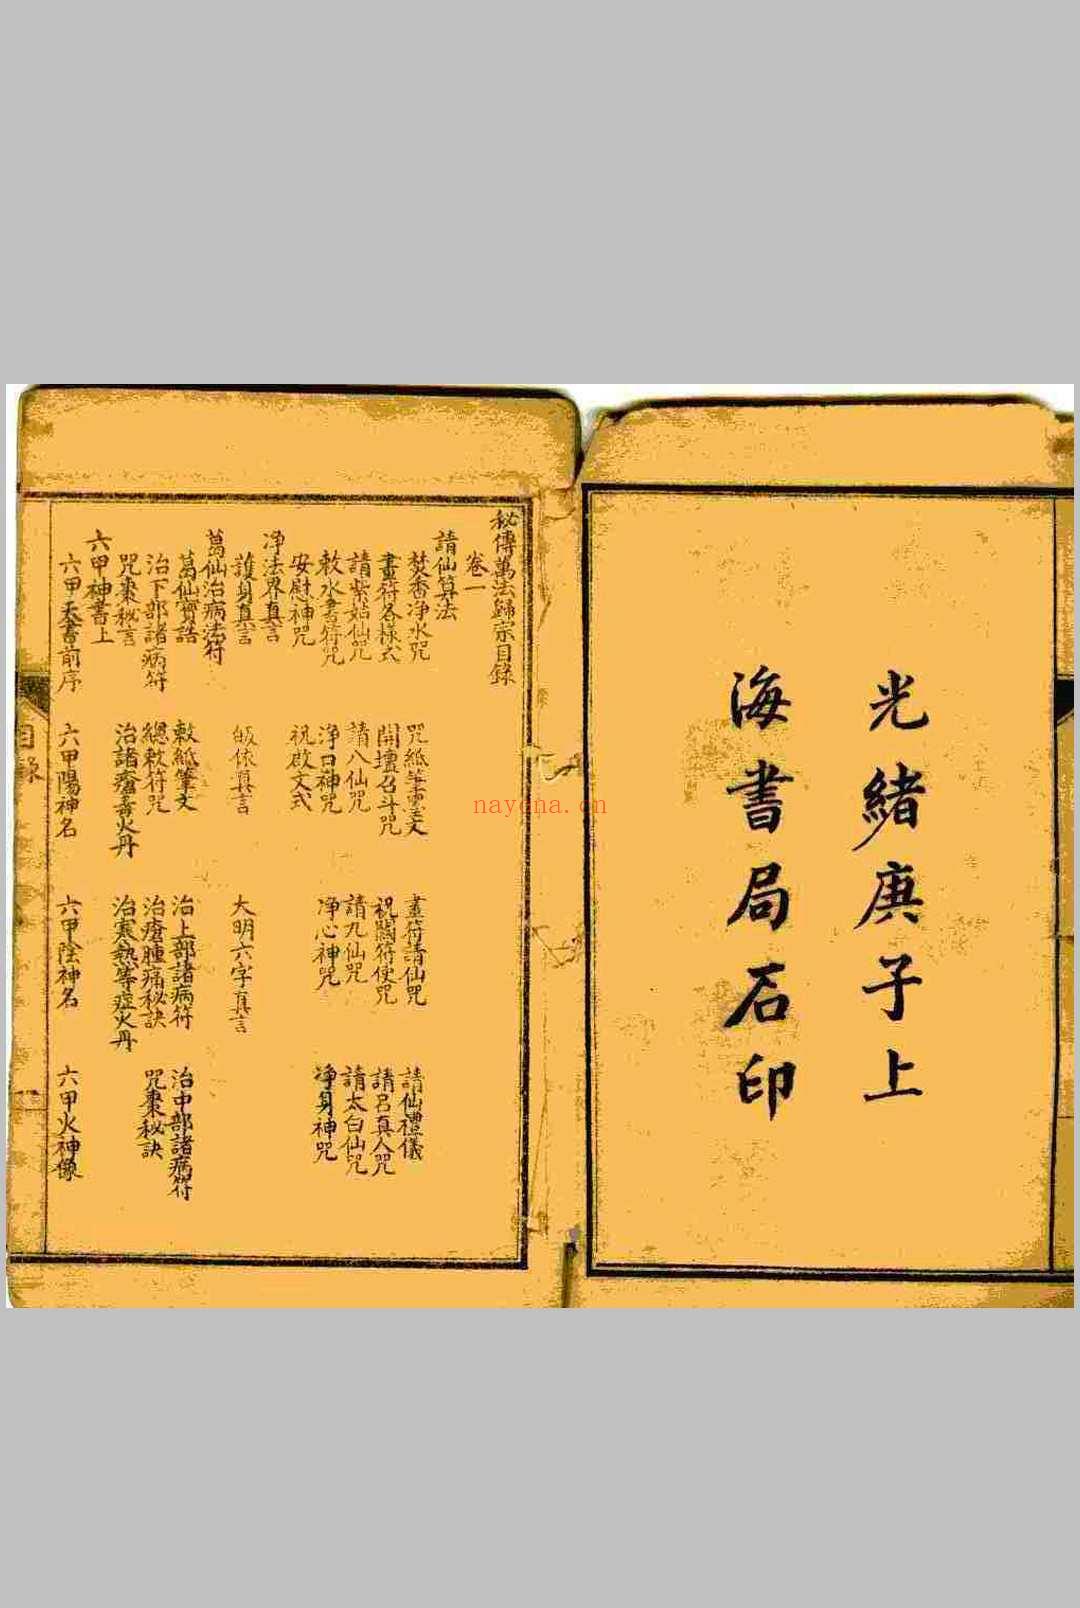 光緒庚子上
海書局石印
秘傳萬法歸宗目錄
卷一
請仙算法
焚香净水咒 咒紙筆墨文 畫符請仙咒 請仙禮儀
畫符各樣式 開壇召斗咒 祝闗符使咒 請呂真人咒
請紫姑仙咒 請八仙咒 請九仙咒 請太白仙咒
敕水書符咒 淨口神咒 净心神咒 凈身神咒
安慰神咒 祝啟文式
净法界真言
護身真言 皈依真言 大明六字真言
葛仙治病法符
葛仙寶誥 敕紙筆文 治上部諸病符 治中部諸病符
治下部諸病符 總敕符咒 治瘡腫痛秘訣 咒棗秘訣
咒棗秘言 治諸瘡毒火丹 治寒熱等症火丹
六甲神書上
六甲天書前序 六甲陽神名 六甲陰神名 六甲火神像
目錄
nayona.cn